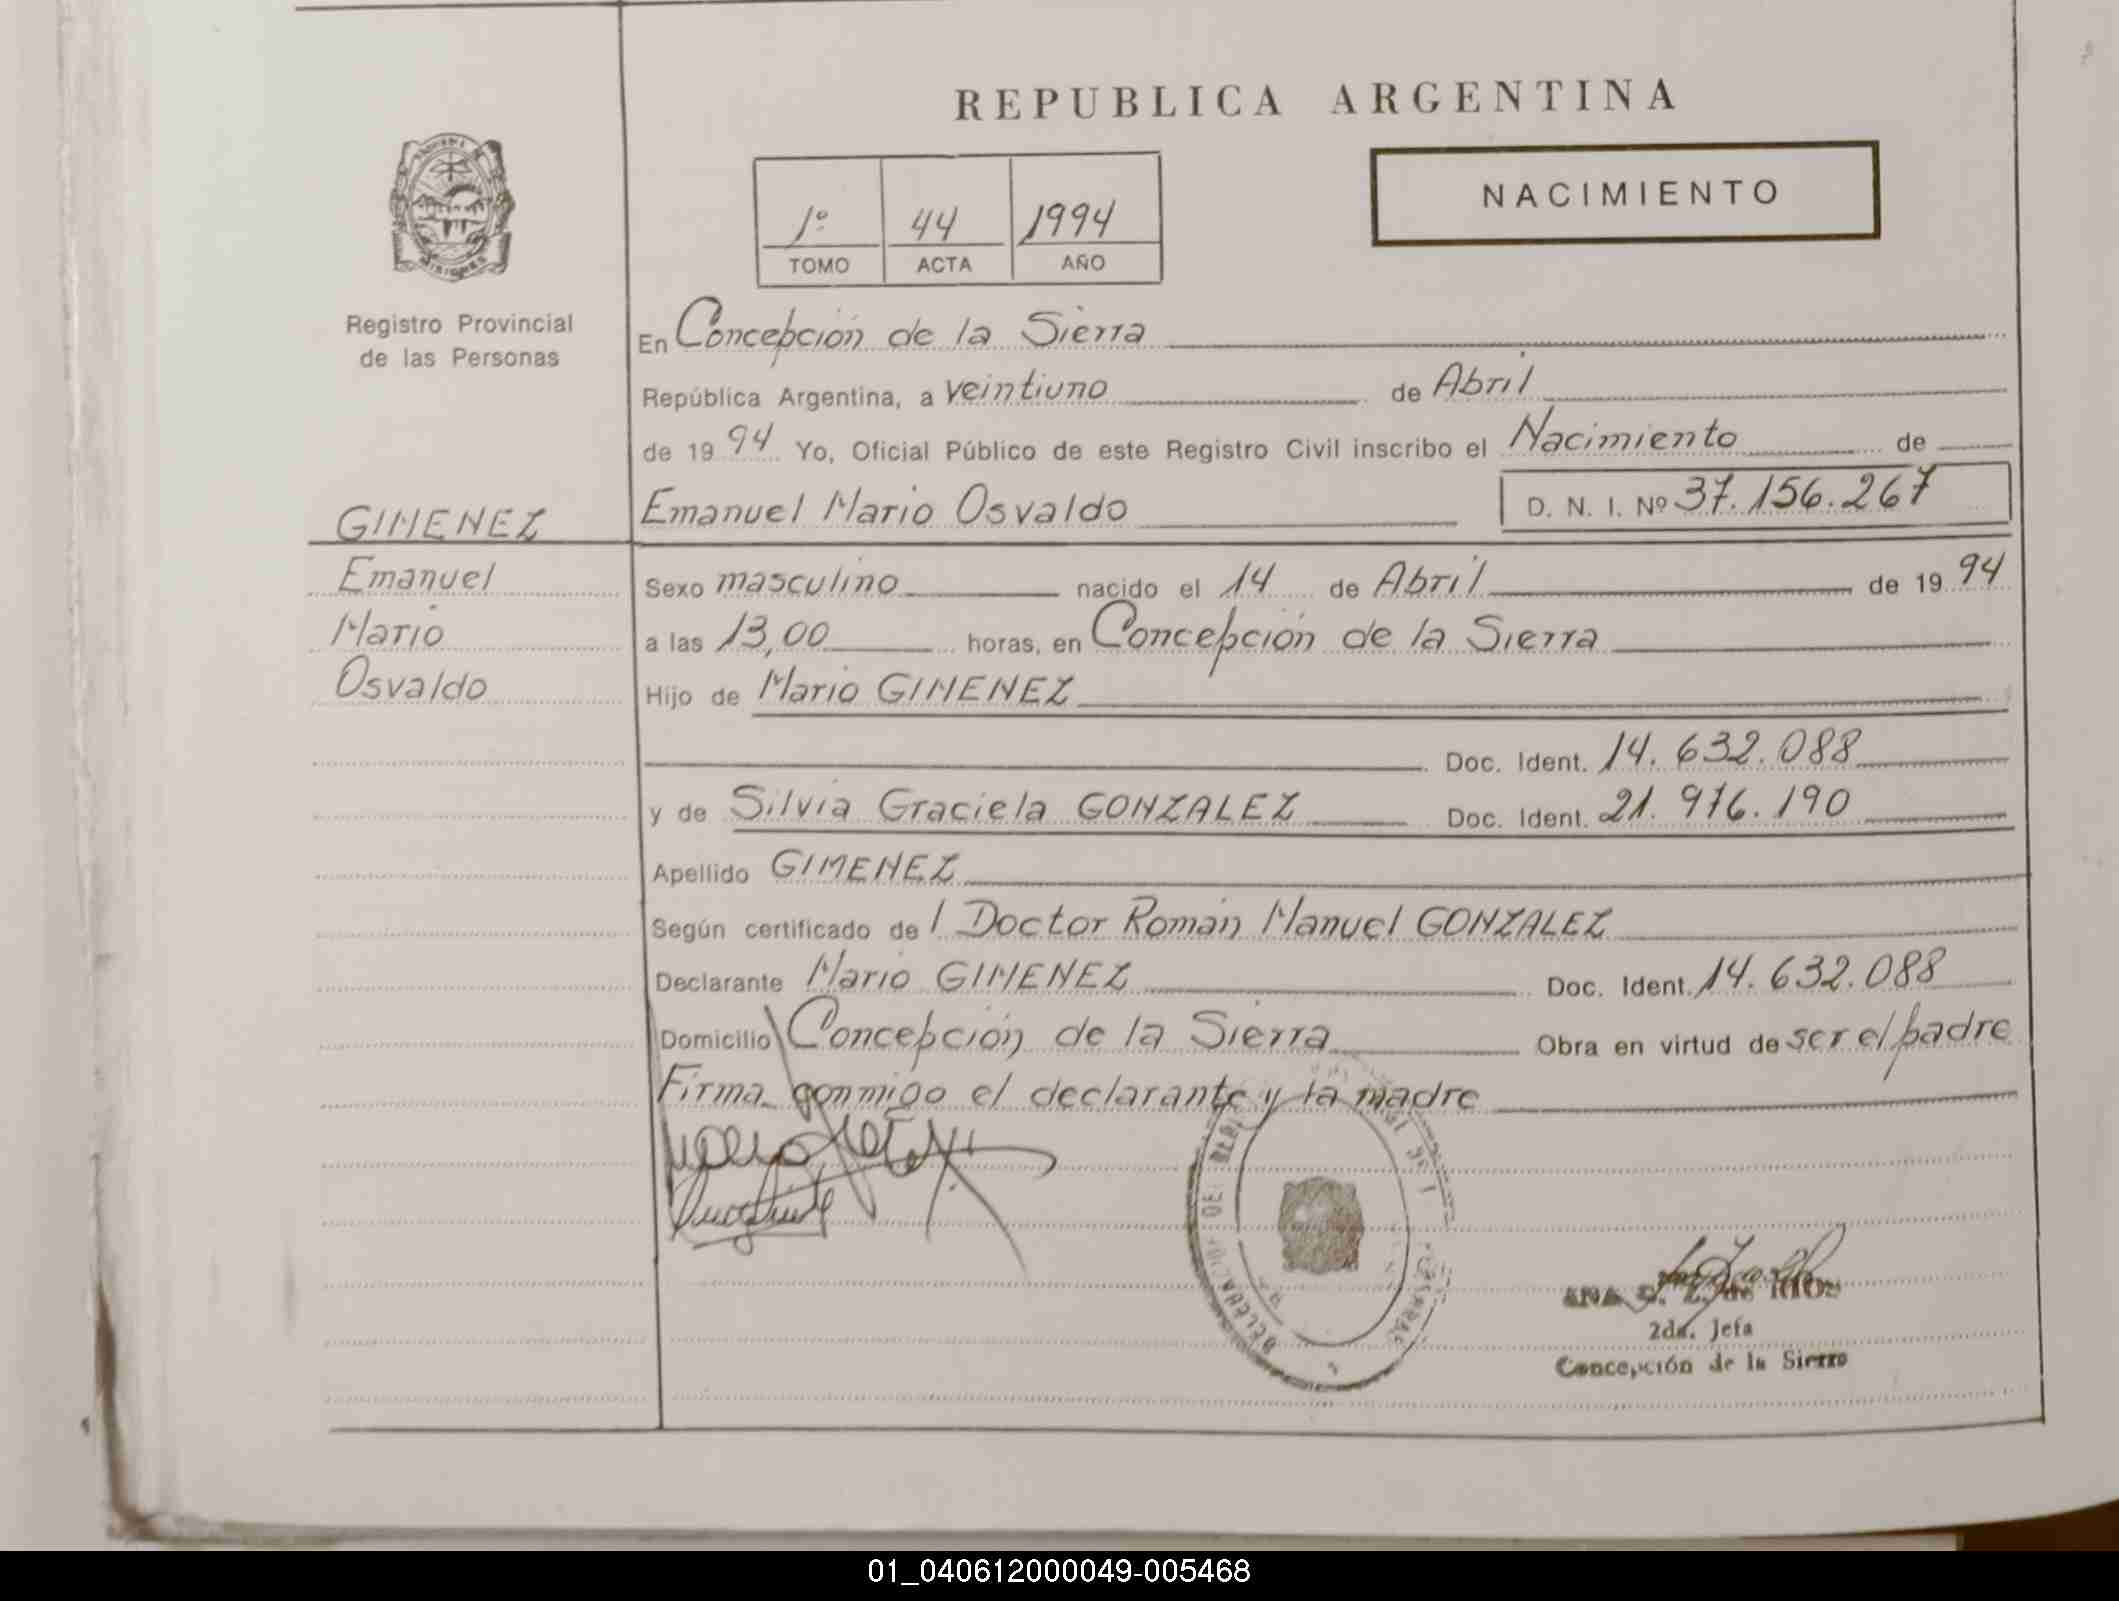 REPUBLICA ARGENTINA
NACIMIENTO
1º 44 1994
TOMO ACTA AÑO
MISIONES
Registro Provincial
de las Personas
En Concepción de la Sierra
República Argentina, a veintiuno de Abril
de 1994 Yo, Oficial Público de este Registro Civil inscribo el Nacimiento de
GIMENEZ
Emanuel
Mario
Osvaldo
Emanuel Mario Osvaldo D. N. I. Nº 37.156.267
Sexo masculino nacido el 14 de Abril de 1994
a las 13,00 horas, en Concepción de la Sierra
Hijo de Mario GIMENEZ
Doc. Ident. 14.632.088
y de Silvia Graciela GONZALEZ Doc. Ident. 21.976.190
Apellido GIMENEZ
Según certificado de l Doctor Román Manuel GONZALEZ
Declarante Mario GIMENEZ Doc. Ident. 14.632.088
Domicilio Concepción de la Sierra Obra en virtud de ser el padre
Firma conmigo el declarante y la madre
ANA de RIOS
2da. Jefa
Concepción de la Sierra
01_040612000049-005468